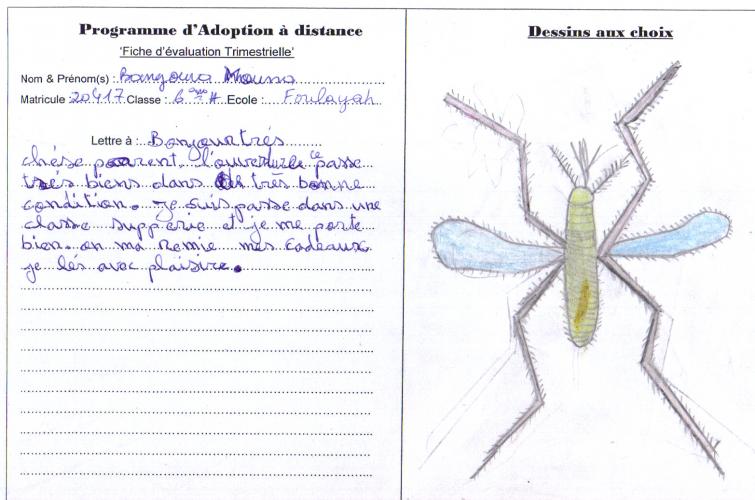 Programme d'Adoption à distance
'Fiche d'évaluation Trimestrielle'
Nom & Prénom(s) : Bangoura Moussa
Matricule : 20417 Classe : 6 ème A Ecole : Foulayah
Lettre à : Bonjour très
chèse parent l'ouverture ce passe
très biens dans des très bonne
condition. Je suis passe dans une
classe supperie et je me porte
bien. on ma Remie mes Cadeaux
je lés avec plaisire.
Dessins aux choix